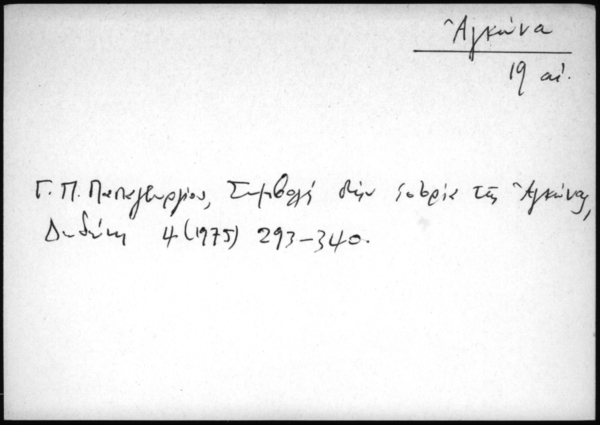 Ἀγκώνα
19 αἰ.
Γ. Π. Παπαγεωργίου, Συμβολή στήν ἱστορία τῆς Ἀγκώνας,
Δωδώνη 4 (1975) 293-340.